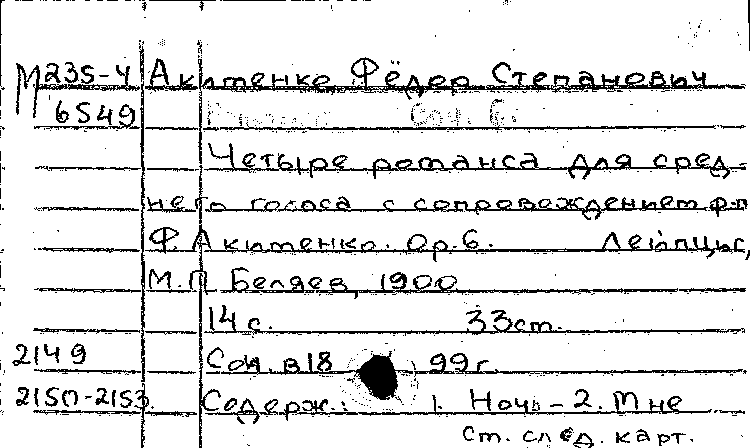 М235-4 Акименко, Фёдор Степанович
6549 Романсы Соч. 6.
Четыре романса для сред-
него голоса с сопровождением ф-п
Ф. Акименко. Op. 6. Лейпциг,
М.П. Беляев, 1900
14 с. 33 см.
2149 Соч. в 18 99 г.
2150-2153. Содерж.: 1. Ночь - 2. Мне
см. след. карт.